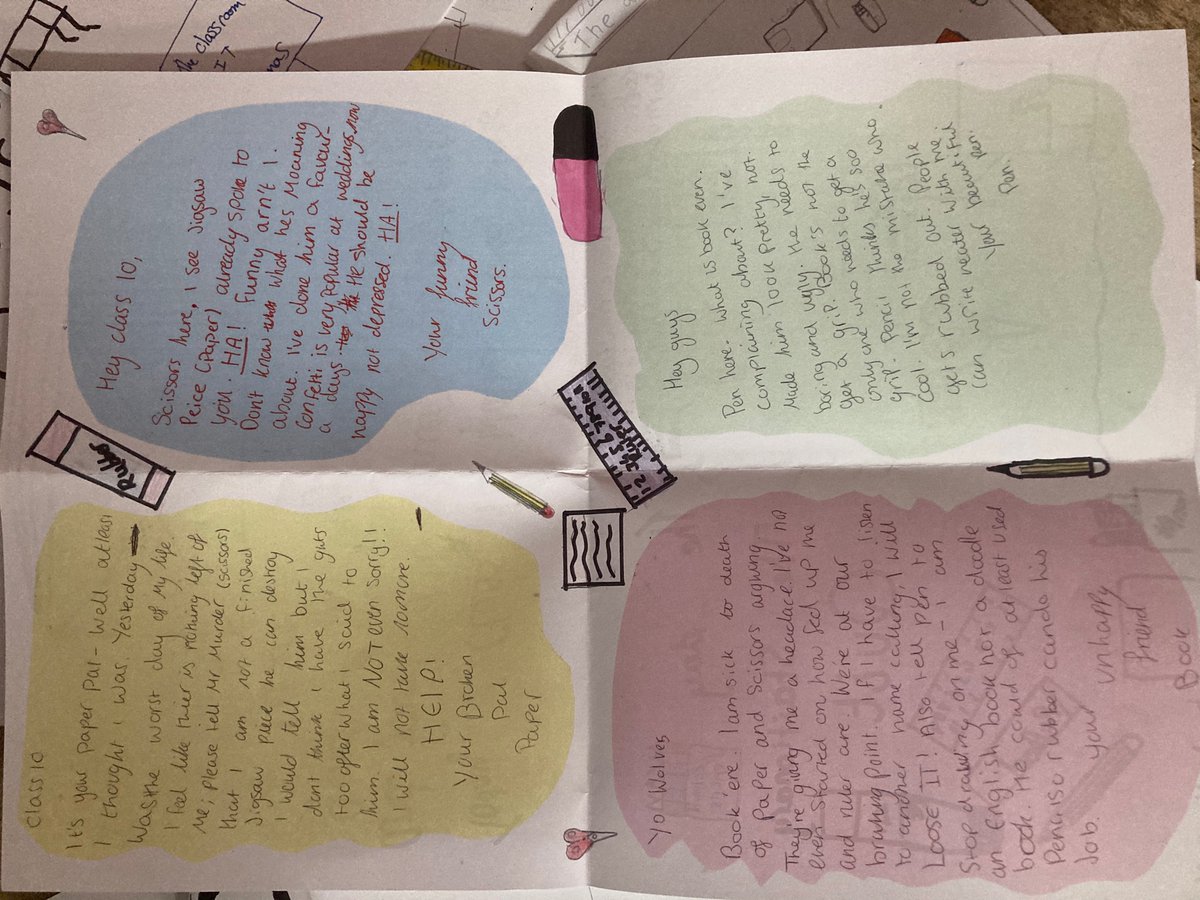 Class 10
It's your Paper Pal - well atleast
I thought I was. Yesterday
was the worst day of my life.
I feel like thier is nothing left of
me; please tell Mr Murder (scissors)
that I am not a finished
Jigsaw piece he can destroy
I would tell him but I
dont think I have the guts
too after what I said to
him. I am NOT even sorry!!
I will not have nomore.
HElP!
Your Broken
Pal
Paper
Hey class 10,
Scissors here, I see Jigsaw
Peice (Paper) already spoke to
you. HA! Funny arn't I.
Dont know what hes Moaning
about. I've done him a favour-
Confetti is very popular at weddings now
a days. He should be
happy not depressed. HA!
Your funny
friend
Scissors.
Yo Wolves
Book 'ere. I am sick to death
of Paper and Scissors arguing.
They're giving me a headace. I've no
even started on how fed up me
and ruler are. We're at our
braking point. If I have to listen
to another name calling, I will
LOOSE IT! Also tell pen to
Stop drawing on me - I am
an English book not a doodle
book. He could of at least used
Pencil so rubber can do his
Job.
your
unhappy
friend
Book
Hey guys
Pen here. What is book even
complaining about? I've
Made him look pretty, not
boring and ugly. He needs to
get a grip. Book's not the
only one who needs to get a
grip. Pencil thinks he's soo
cool. I'm not the mistake who
gets rubbed out. People
can write neater with me.
Your beautiful
Pen.
Pen.
Rubber
The classroom
IT
The